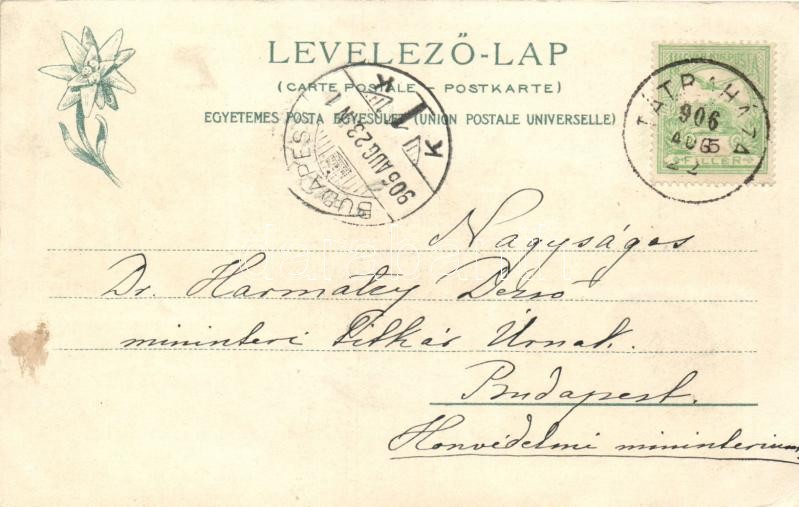 LEVELEZŐ-LAP
(CARTE POSTALE – POSTKARTE)
EGYETEMES POSTA EGYESÜLET (UNION POSTALE UNIVERSELLE)
BUDAPEST
905 AUG 23 N 1
K 1 K
TÁTRAHÁZA
906
AUG
22
5
FILLÉR
Nagyságos
Dr. Harmatzy Dezső
miniszteri Titkár Úrnak.
Budapest.
Honvédelmi miniszterium